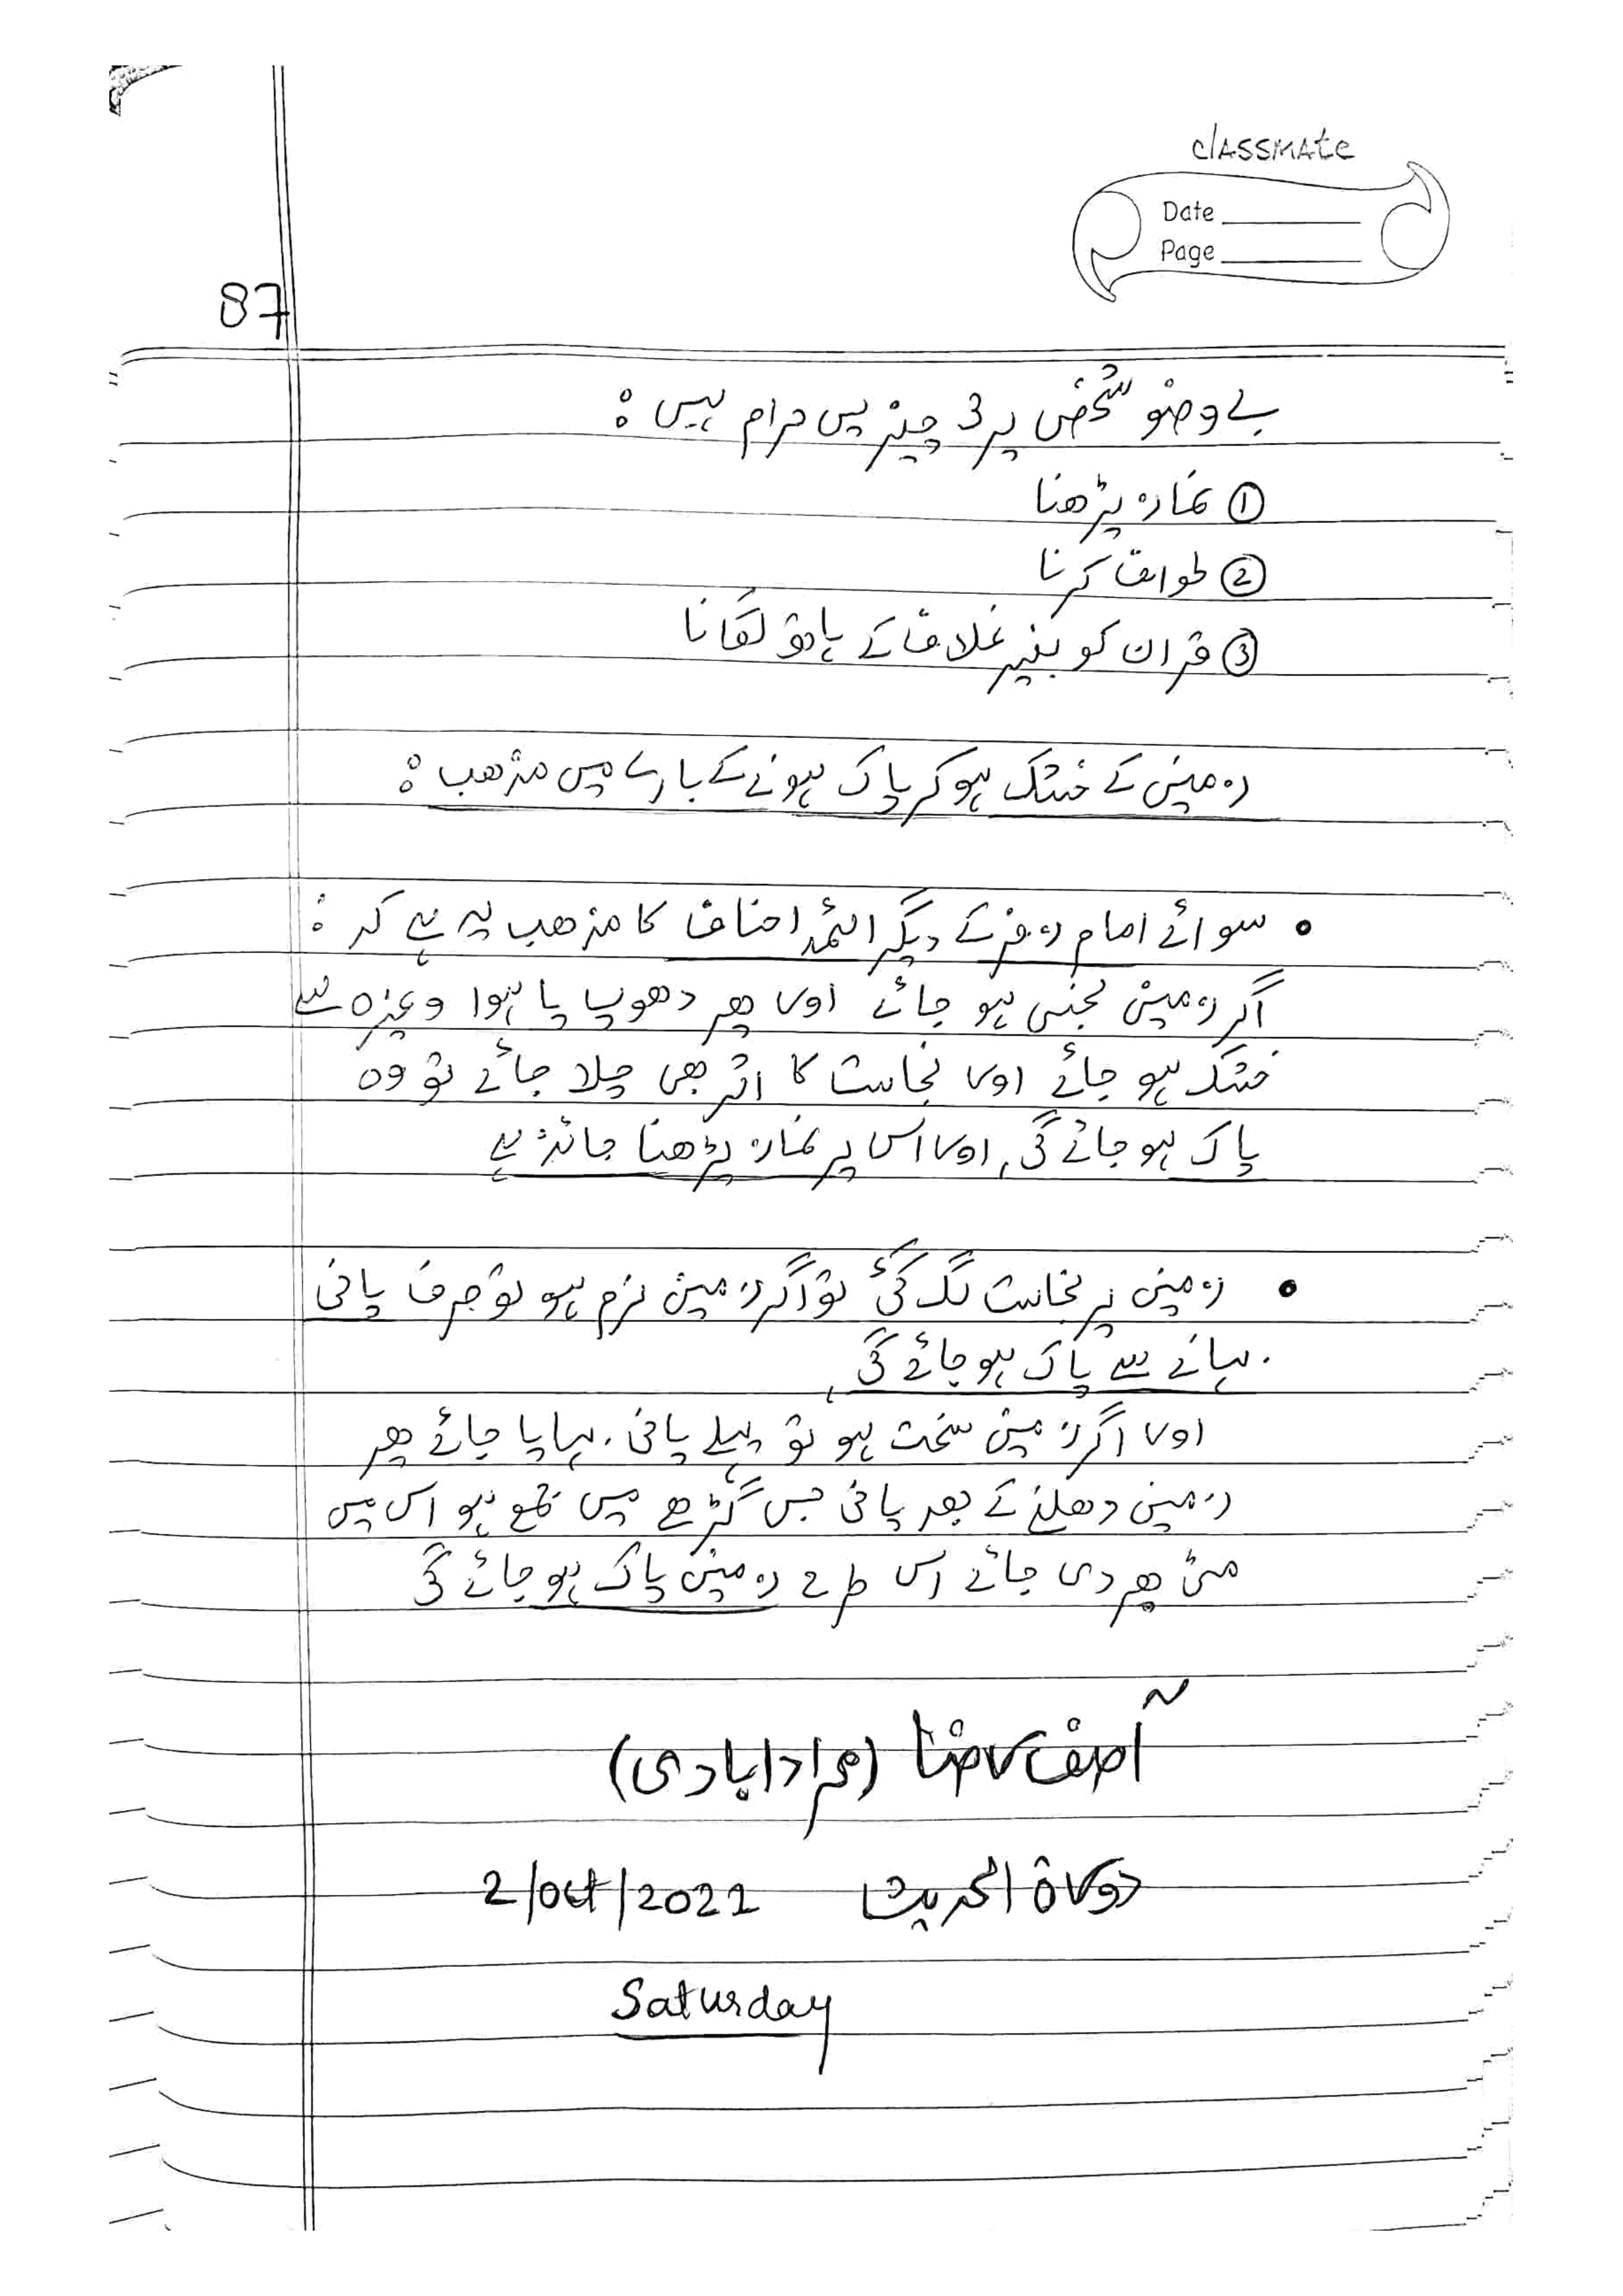 classmate
Date
Page
87
بے وضو شخص پر 3 چیزیں حرام ہیں :
① نماز پڑھنا
② طواف کرنا
③ قران کو بغیر غلاف کے ہاتھ لگانا
زمین کے خشک ہو کر پاک ہونے کے بارے میں مذھب :
• سوائے امام زفر کے دیگر ائمہ احناف کا مذھب یہ ہے کہ :
اگر زمین نجس ہو جائے اور پھر دھوپ یا ہوا وغیرہ سے
خشک ہو جائے اور نجاست کا اثر بھی چلا جائے تو وہ
پاک ہو جائے گی، اور اس پر نماز پڑھنا جائز ہے
• زمین پر نجاست لگ گئی تو اگر زمین نرم ہو تو صرف پانی
بہانے سے پاک ہو جائے گی،
اور اگر زمین سخت ہو تو پہلے پانی بہایا جائے پھر
زمین دھلنے کے بعد پانی جس گڑھے میں جمع ہو اس میں
مٹی بھر دی جائے اس طرح زمین پاک ہو جائے گی
آصف رضا (مرادابادی)
دورۃ الحدیث 2/Oct/2021
Saturday